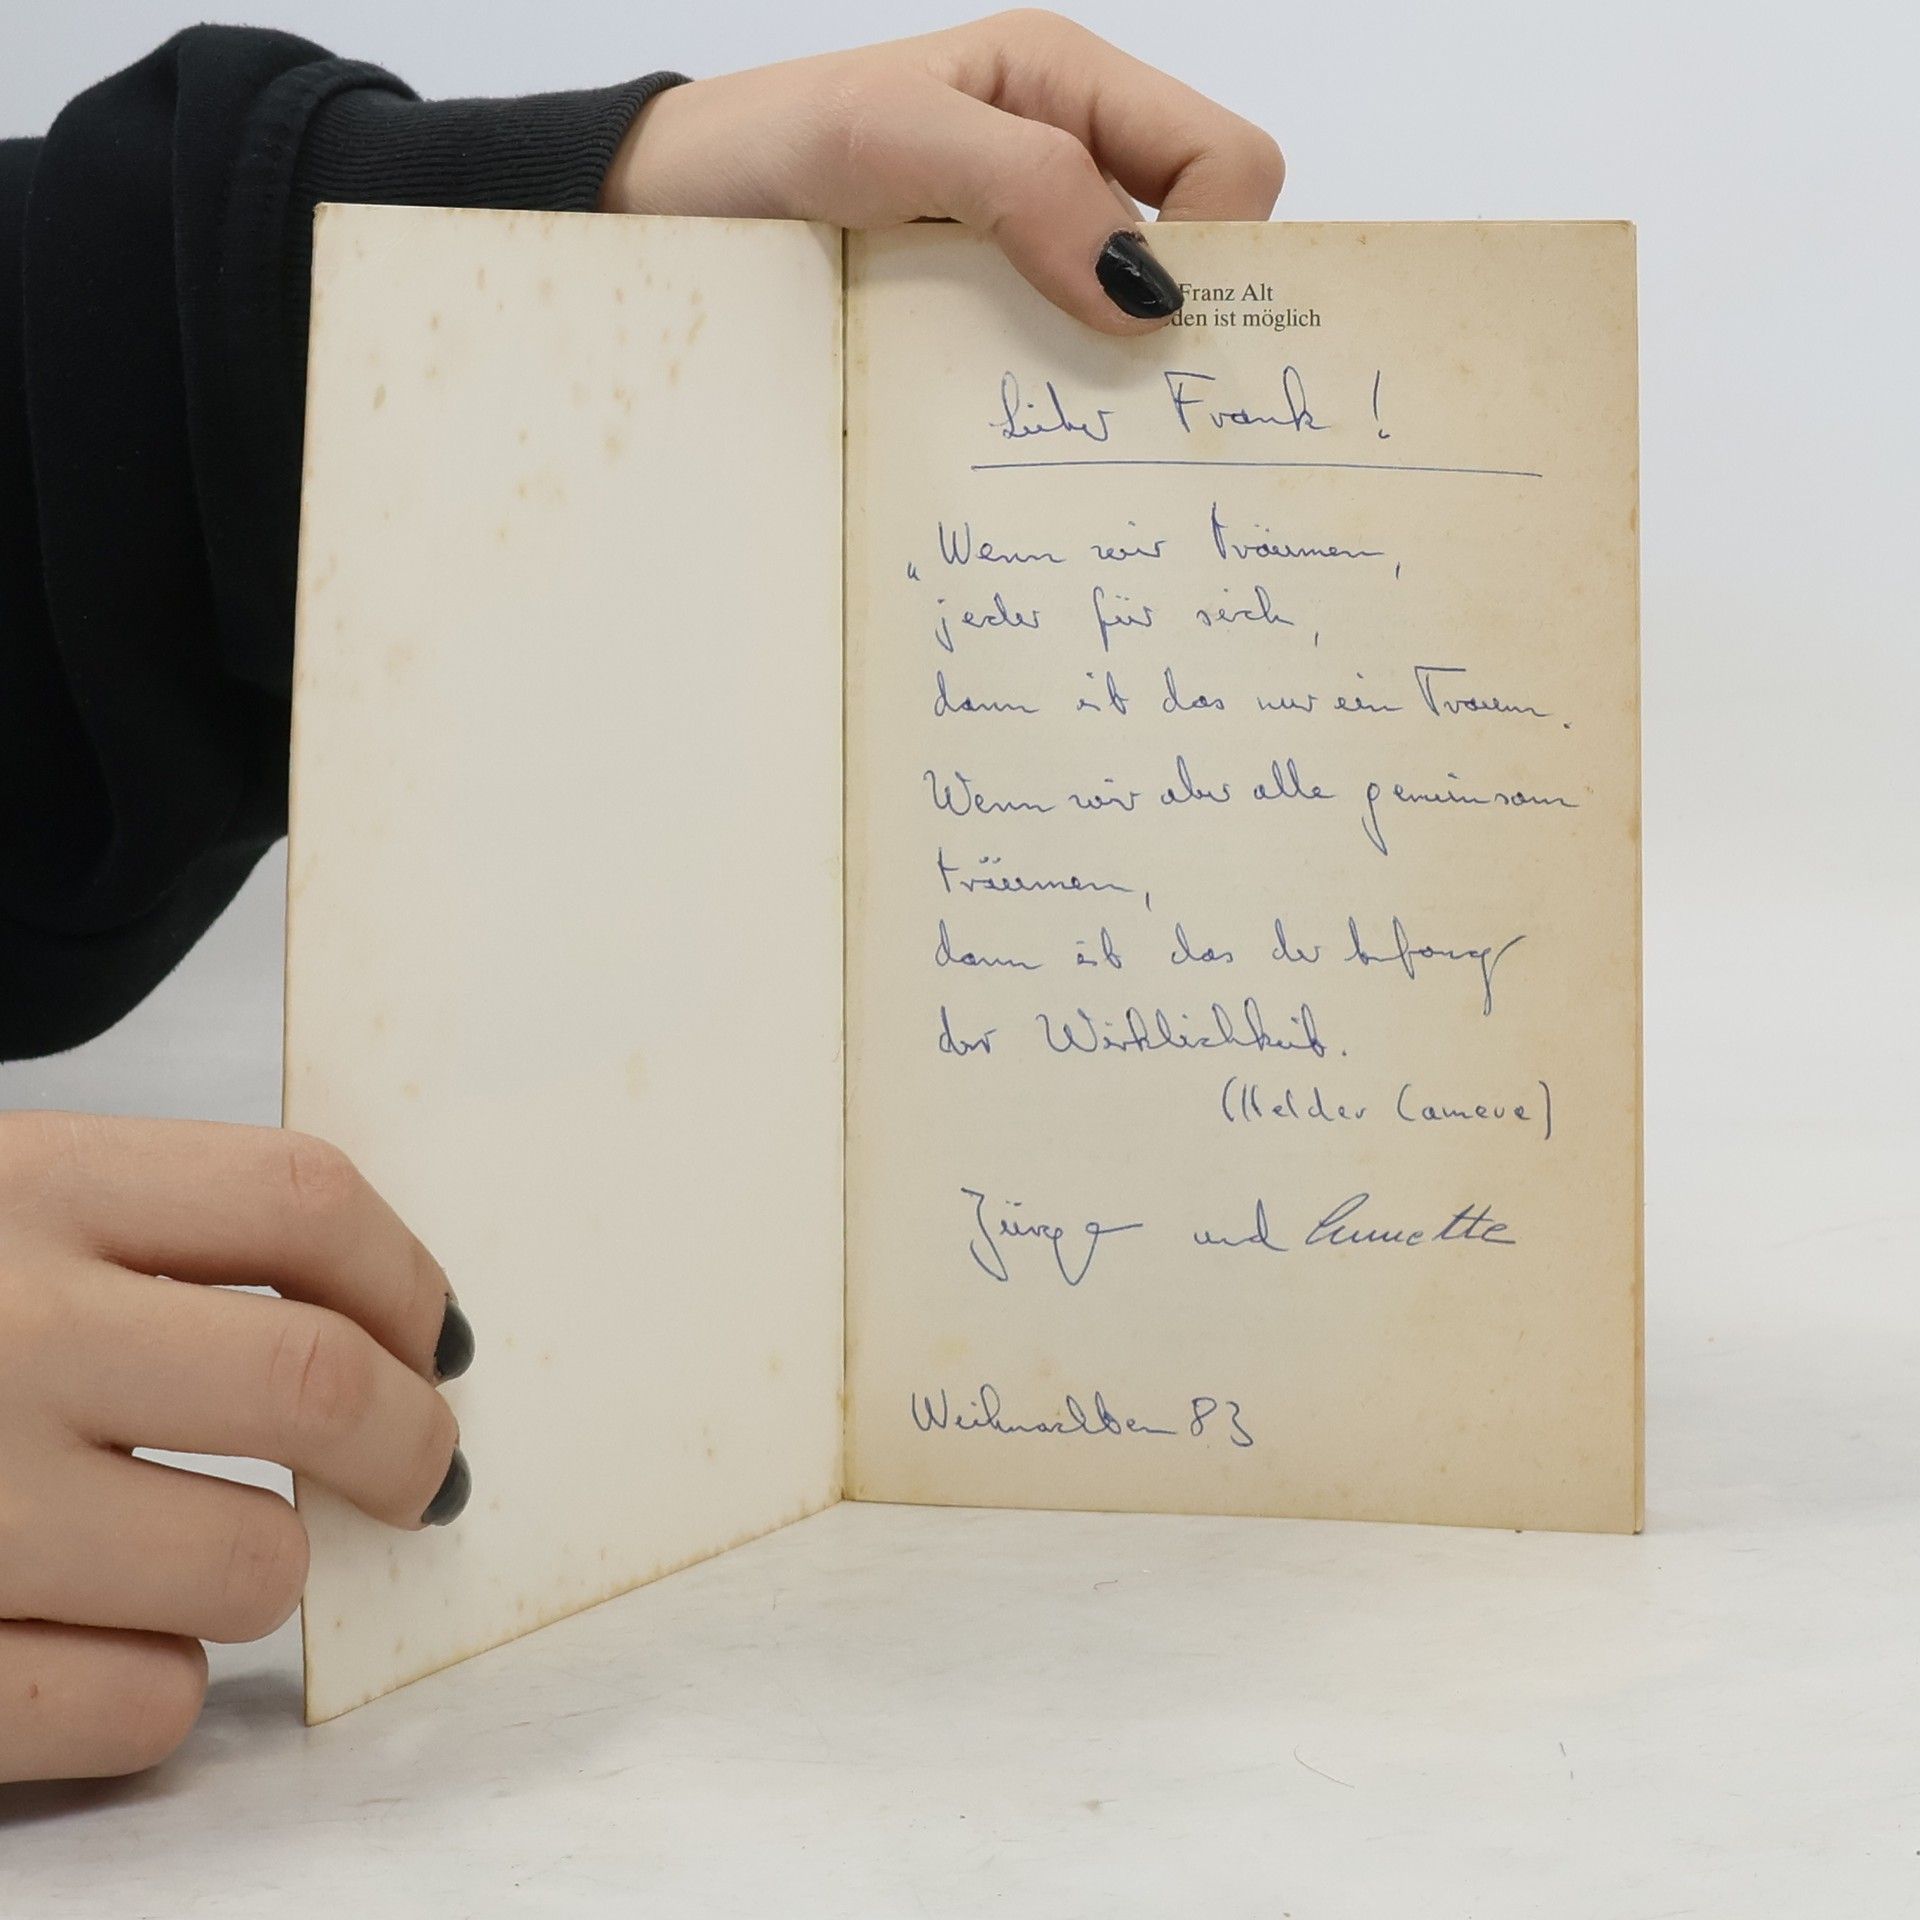 Franz Alt
den ist möglich
Lieber Frank!
„Wenn wir träumen,
jeder für sich,
dann ist das nur ein Traum.
Wenn wir aber alle gemeinsam
träumen,
dann ist das der Anfang
der Wirklichkeit.
(Helder Camera)
Jürgen und Annette
Weihnachten 83